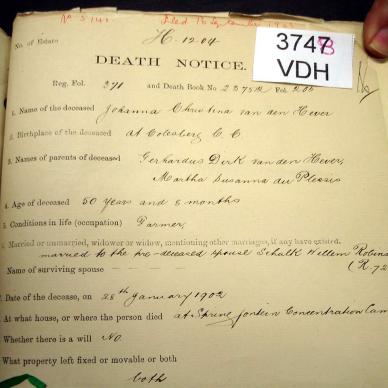 No 5141. Filed 15 September 1902
No. of Estate H. 1204
3747B
VDH
DEATH NOTICE.
Reg. Fol. 271 and Death Book No 23752 Fol. 206
1. Name of the deceased Johanna Christina van den Hever
2. Birthplace of the deceased at Colesberg C. C
3. Names of parents of deceased Gerhardus Dirk van den Hever,
Martha Susanna du Plessis
4. Age of deceased 50 years and 8 months
5. Conditions in life (occupation) Farmer,
6. Married or unmarried, widower or widow, mentioning other marriages, if any have existed.
married to the pre-deceased spouse Schalk Willem Robins
(R. 72
Name of surviving spouse — — — — —
7. Date of the decease, on 28th January 1902
At what house, or where the person died at Springfontein Concentration Cam
Whether there is a will No.
What property left fixed or movable or both
both